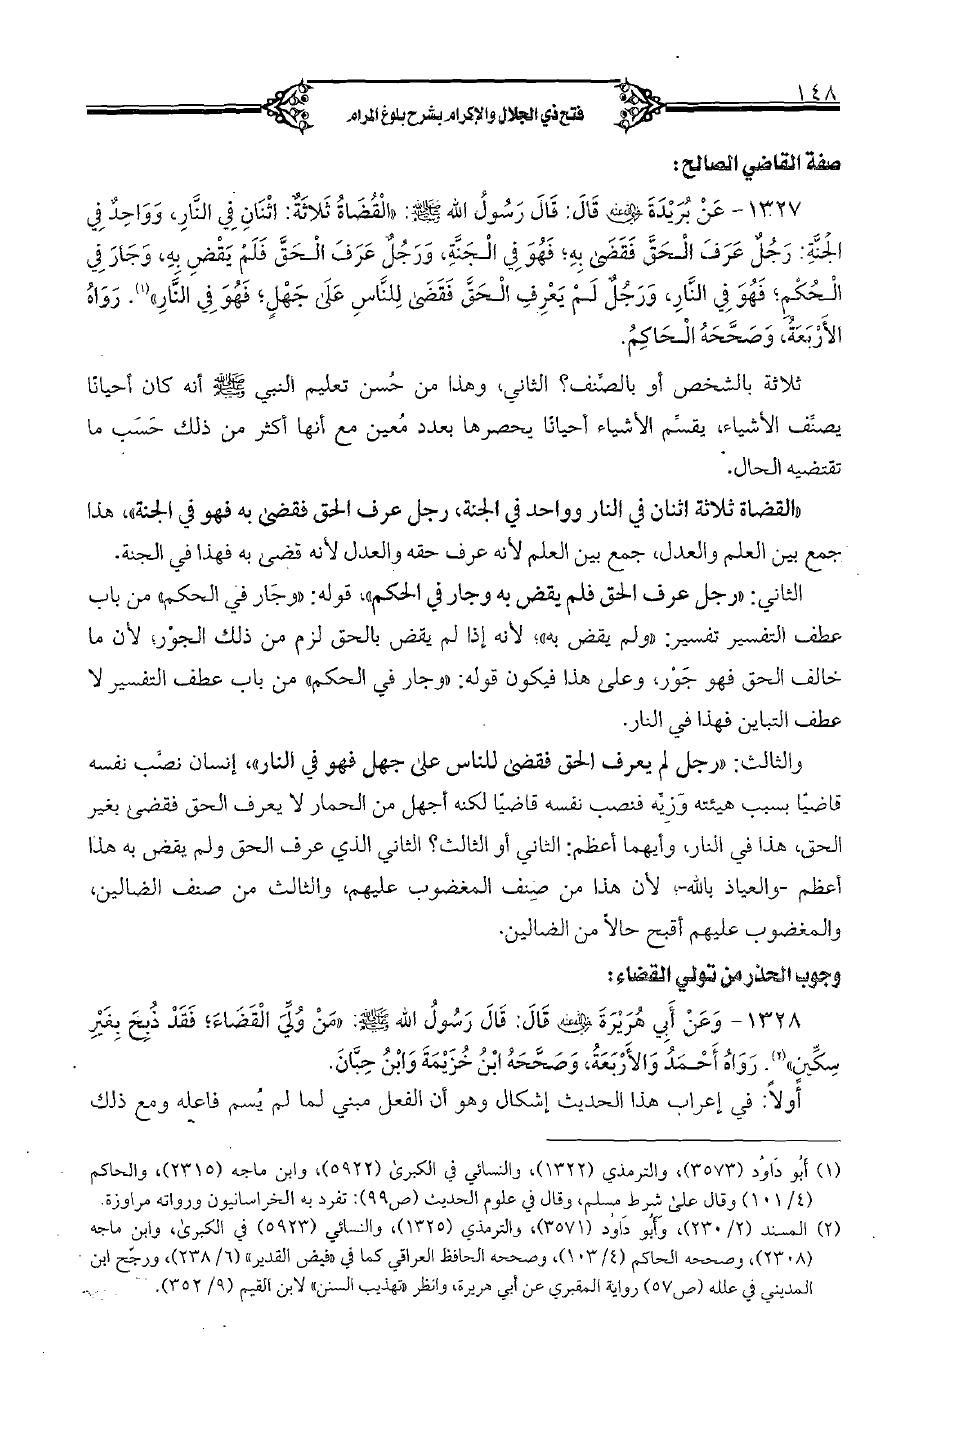 ١٤٨
فتح ذي الجلال والإكرام بشرح بلوغ المرام
صفة القاضي الصالح:
١٣٢٧- عَنْ بُرَيْدَةَ رضي الله عنه قَالَ: قَالَ رَسُولُ الله ﷺ: «الْقُضَاةُ ثَلَاثَةٌ: اثْنَانِ فِي النَّارِ، وَوَاحِدٌ فِي
الْجَنَّةِ: رَجُلٌ عَرَفَ الْحَقَّ فَقَضَىٰ بِهِ؛ فَهُوَ فِي الْجَنَّةِ، وَرَجُلٌ عَرَفَ الْحَقَّ فَلَمْ يَقْضِ بِهِ، وَجَارَ فِي
الْحُكْمِ؛ فَهُوَ فِي النَّارِ، وَرَجُلٌ لَمْ يَعْرِفِ الْحَقَّ فَقَضَىٰ لِلنَّاسِ عَلَىٰ جَهْلٍ؛ فَهُوَ فِي النَّارِ»(١). رَوَاهُ
الأَرْبَعَةُ، وَصَحَّحَهُ الْحَاكِمُ.
ثلاثة بالشخص أو بالصِّنف؟ الثاني، وهذا من حُسن تعليم النبي ﷺ أنه كان أحيانًا
يصنِّف الأشياء، يقسِّم الأشياء أحيانًا يحصرها بعدد مُعين مع أنها أكثر من ذلك حَسَب ما
تقتضيه الحال.
«القضاة ثلاثة اثنان في النار وواحد في الجنة، رجل عرف الحق فقضىٰ به فهو في الجنة»، هذا
جمع بين العلم والعدل، جمع بين العلم لأنه عرف حقه والعدل لأنه قضىٰ به فهذا في الجنة.
الثاني: «رجل عرف الحق فلم يقض به وجار في الحكم»، قوله: «وجَار في الحكم» من باب
عطف التفسير تفسير: «ولم يقض به»؛ لأنه إذا لم يقض بالحق لزم من ذلك الجوْر؛ لأن ما
خالف الحق فهو جَوْر، وعلىٰ هذا فيكون قوله: «وجار في الحكم» من باب عطف التفسير لا
عطف التباين فهذا في النار.
والثالث: «رجل لم يعرف الحق فقضىٰ للناس علىٰ جهل فهو في النار»، إنسان نصَّب نفسه
قاضيًا بسبب هيئته وَزِيِّه فنصب نفسه قاضيًا لكنه أجهل من الحمار لا يعرف الحق فقضىٰ بغير
الحق، هذا في النار، وأيهما أعظم: الثاني أو الثالث؟ الثاني الذي عرف الحق ولم يقض به هذا
أعظم -والعياذ بالله-؛ لأن هذا من صِنف المغضوب عليهم، والثالث من صنف الضالين،
والمغضوب عليهم أقبح حالاً من الضالين.
وجوب الحذر من تولي القضاء:
١٣٢٨- وَعَنْ أَبِي هُرَيْرَةَ رضي الله عنه قَالَ: قَالَ رَسُولُ الله ﷺ: «مَنْ وُلِّيَ الْقَضَاءَ؛ فَقَدْ ذُبِحَ بِغَيْرِ
سِكِّينٍ»(٢). رَوَاهُ أَحْمَدُ وَالأَرْبَعَةُ، وَصَحَّحَهُ ابْنُ خُزَيْمَةَ وَابْنُ حِبَّانَ.
أولاً: في إعراب هذا الحديث إشكال وهو أن الفعل مبني لما لم يُسم فاعله ومع ذلك
(١) أَبُو دَاوُد (٣٥٧٣)، والترمذي (١٣٢٢)، والنسائي في الكبرىٰ (٥٩٢٢)، وابن ماجه (٢٣١٥)، والحاكم
(٤/ ١٠١) وقال علىٰ شرط مسلم، وقال في علوم الحديث (ص٩٩): تفرد به الخراسانيون ورواته مراوزة.
(٢) المسند (٢/ ٢٣٠)، وأَبُو دَاوُد (٣٥٧١)، والترمذي (١٣٢٥)، والنسائي (٥٩٢٣) في الكبرىٰ، وابن ماجه
(٢٣٠٨)، وصححه الحاكم (٤/ ١٠٣)، وصححه الحافظ العراقي كما في «فيض القدير» (٦/ ٢٣٨)، ورجّح ابن
المديني في علله (ص٥٧) رواية المقبري عن أبي هريرة، وانظر «تهذيب السنن» لابن القيم (٩/ ٣٥٢).